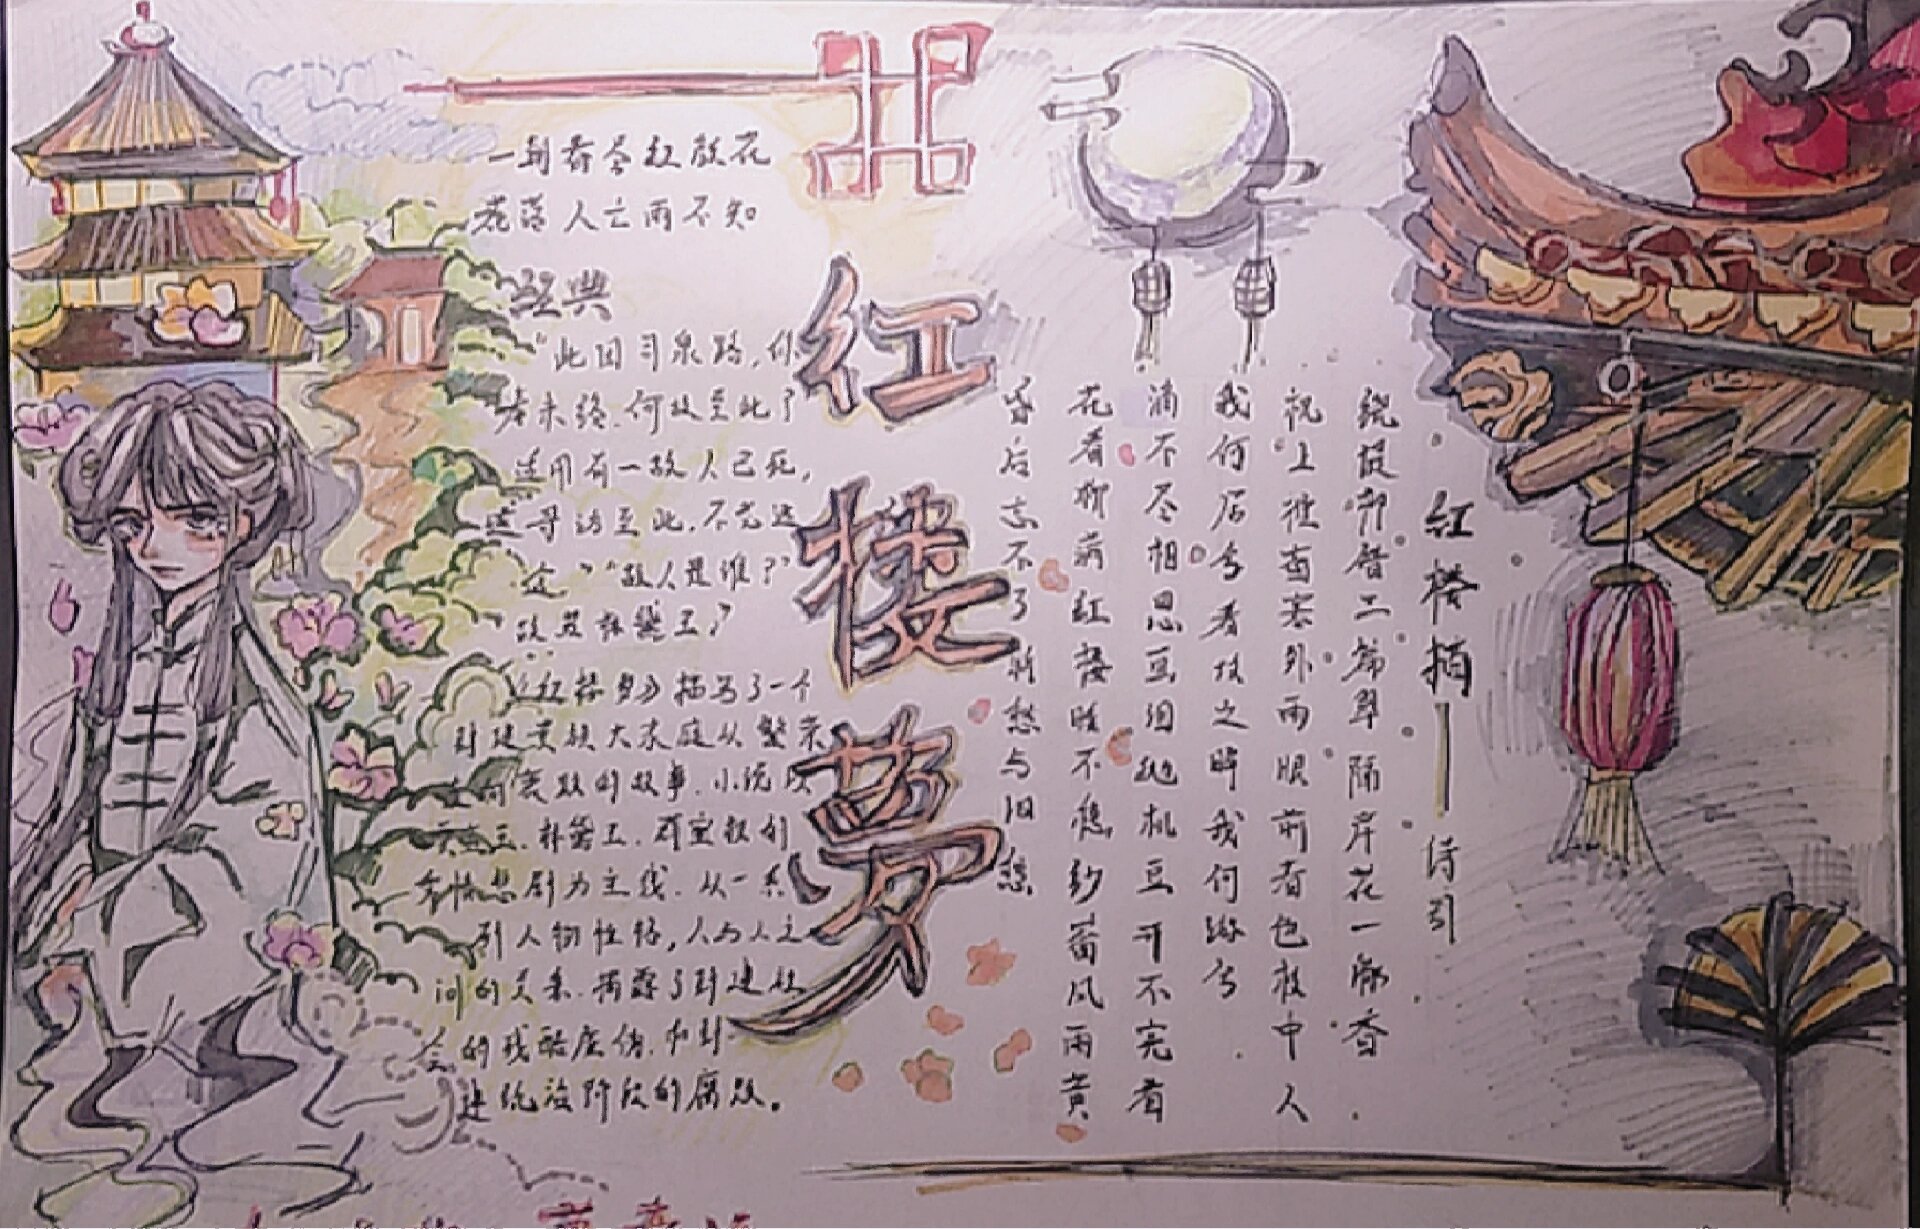 一朝春尽红颜花
花落人亡两不知
经典
"此回司泉路,你
寿未终.何故至此?
适闻有一故人已死,
寻访至此.不免迷
途""故人是谁?"
故苏林黛玉?
《红楼梦》描写了一个
封建贵族大家庭从繁荣
走向衰败的故事.小说以
贾宝玉.林黛玉.薛宝钗的
爱情悲剧为主线.从一系
列人物性格,人与人之
间的关系.揭露了封建社
会的残酷压仿.和封
建统治阶段的腐败。
红楼梦
红楼梦——诗引
绕堤柳借三篙翠隔岸花一脉香
枕上彼窗寒外雨眼前春色梦中人
我何厉兮看枝之时我何踪兮
滴不尽相思豆泪抛机豆开不完看
花看柳满红楼睡不稳纱窗风雨黄
昏后忘不了新愁与旧愁